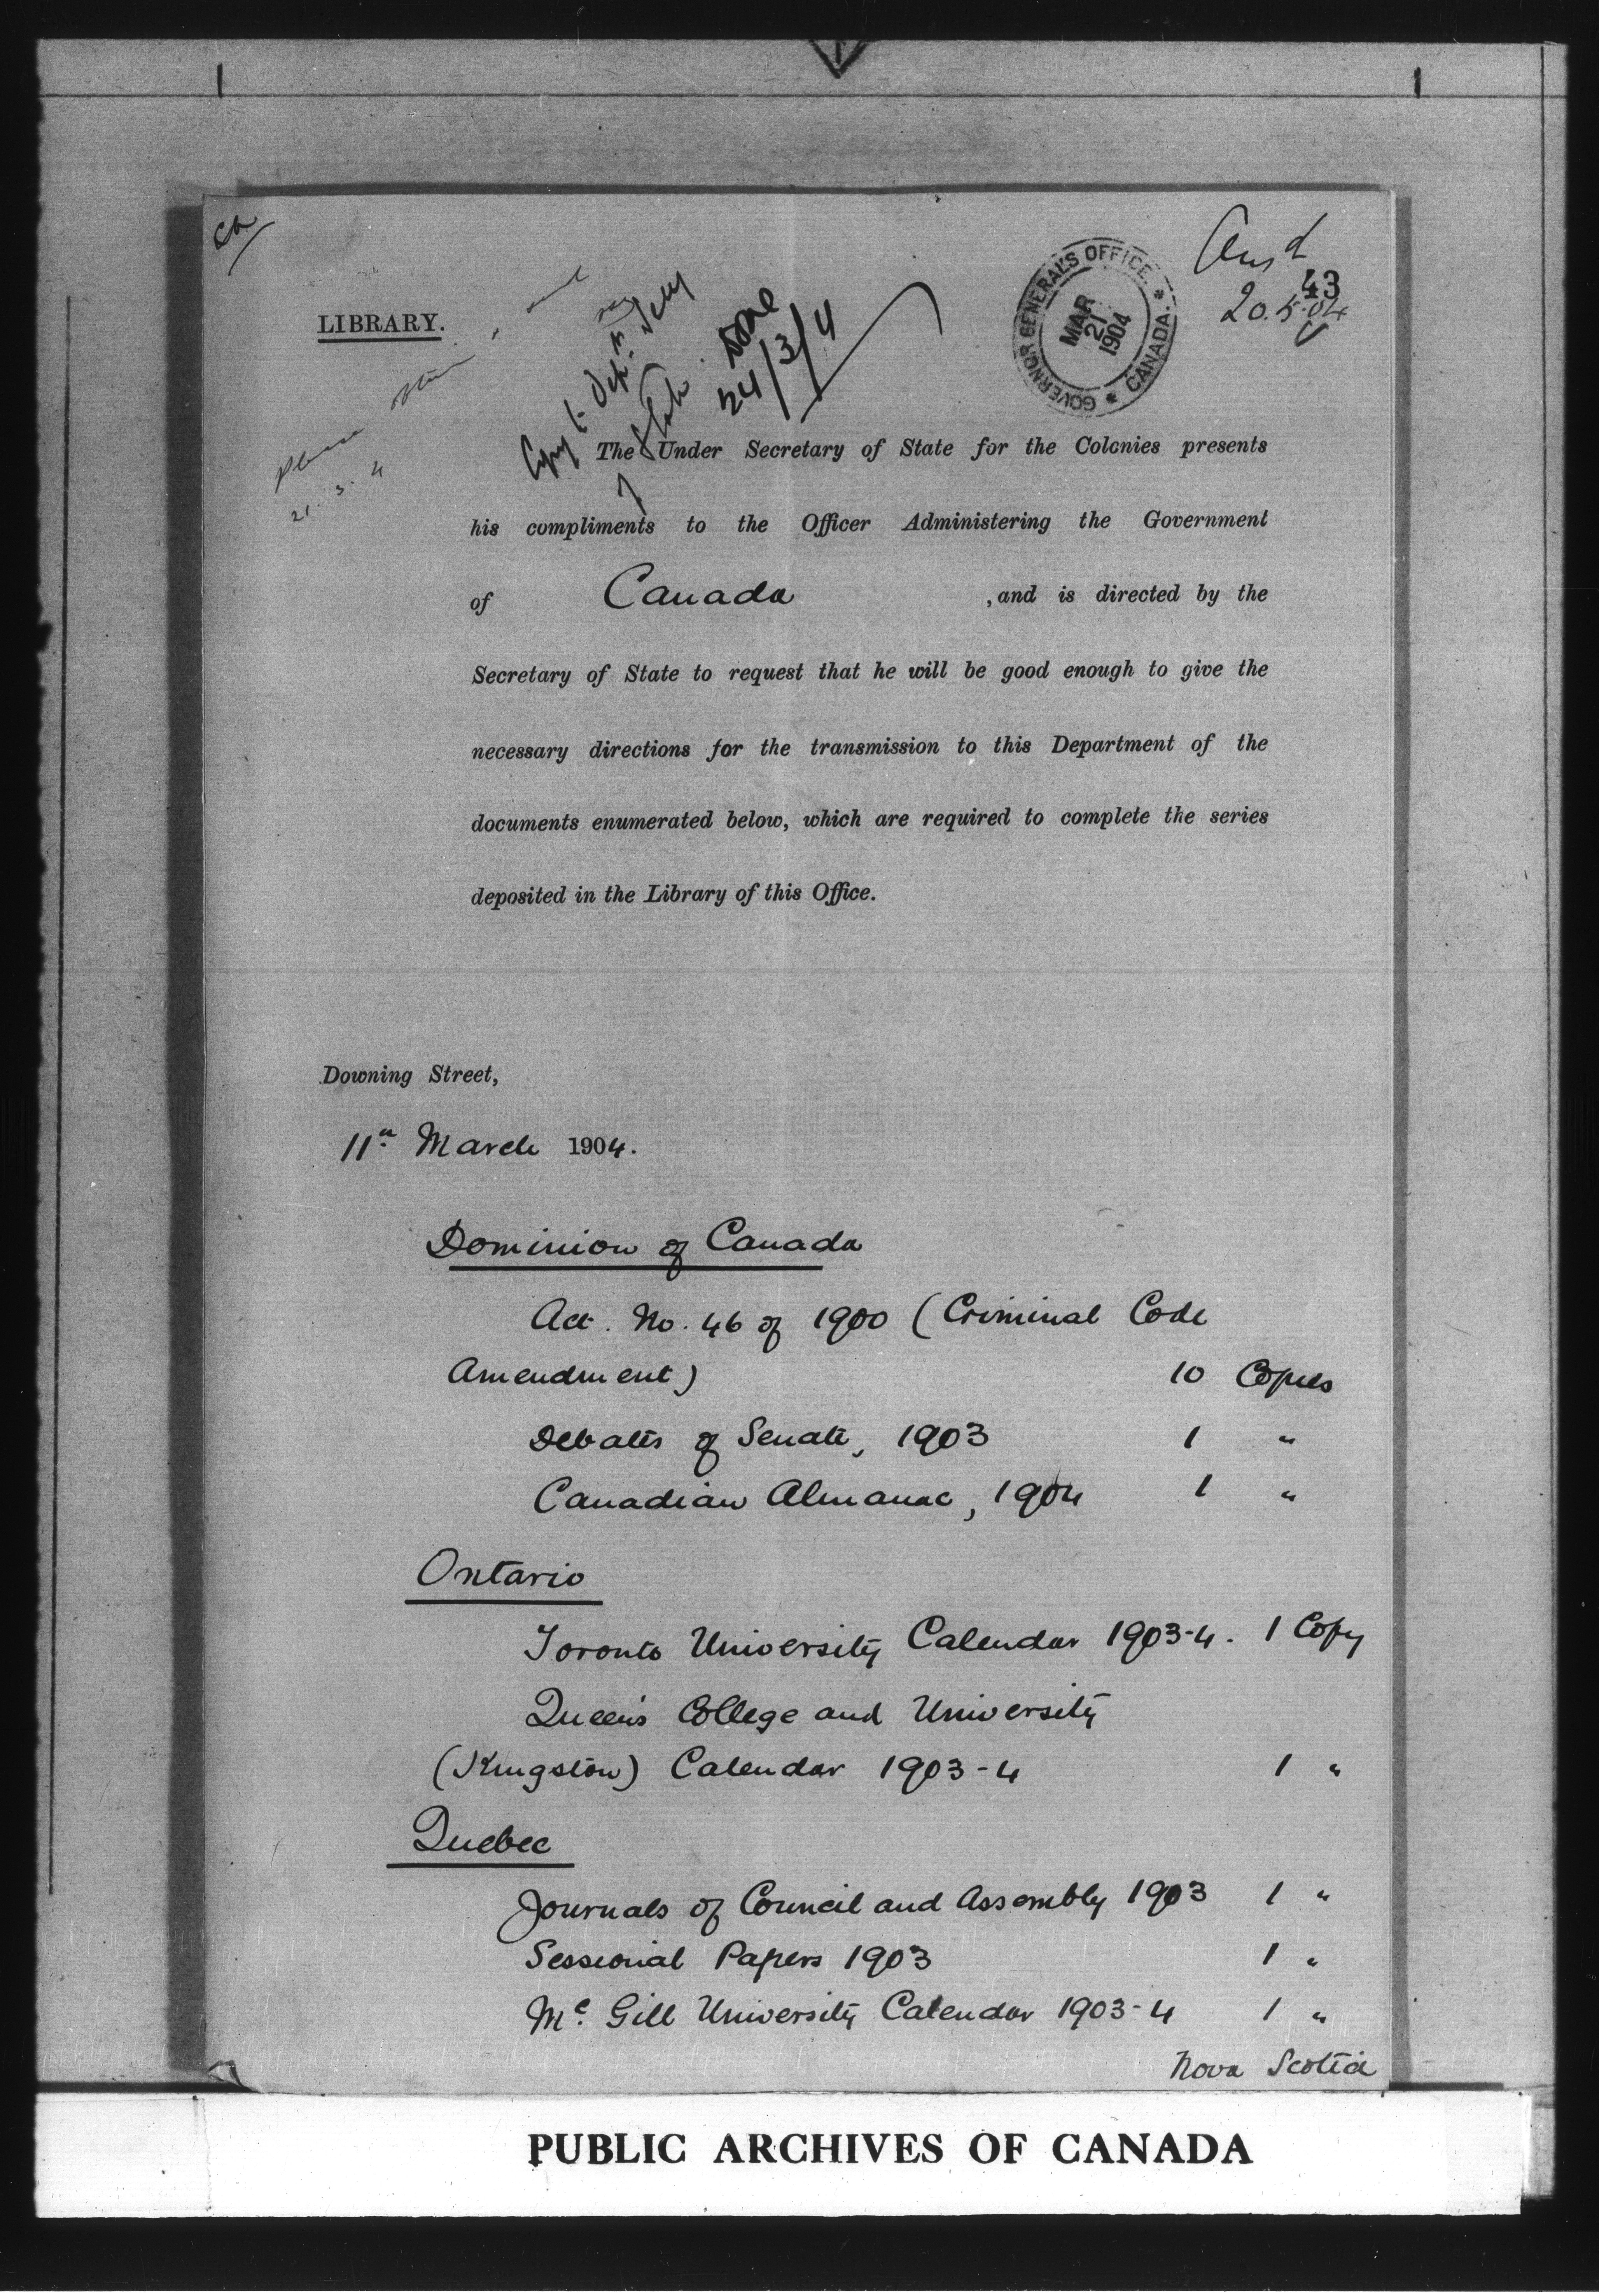 Ansd
43
20.5.04
LIBRARY.
GOVERNOR GENERAL'S OFFICE * CANADA *
MAR
21
1904
Please
21.3.4
Copy to Dept. of
State.
Done
24/3/4
The Under Secretary of State for the Colonies presents
his compliments to the Officer Administering the Government
of Canada , and is directed by the
Secretary of State to request that he will be good enough to give the
necessary directions for the transmission to this Department of the
documents enumerated below, which are required to complete the series
deposited in the Library of this Office.
Downing Street,
11th March 1904.
Dominion of Canada
Act. No. 46 of 1900 (Criminal Code
Amendment) 10 Copies
Debates of Senate, 1903 1 "
Canadian Almanac, 1904 1 "
Ontario
Toronto University Calendar 1903-4. 1 Copy
Queen's College and University
(Kingston) Calendar 1903-4 1 "
Quebec
Journals of Council and Assembly 1903 1 "
Sessional Papers 1903 1 "
Mc. Gill University Calendar 1903-4 1 "
Nova Scotia
PUBLIC ARCHIVES OF CANADA